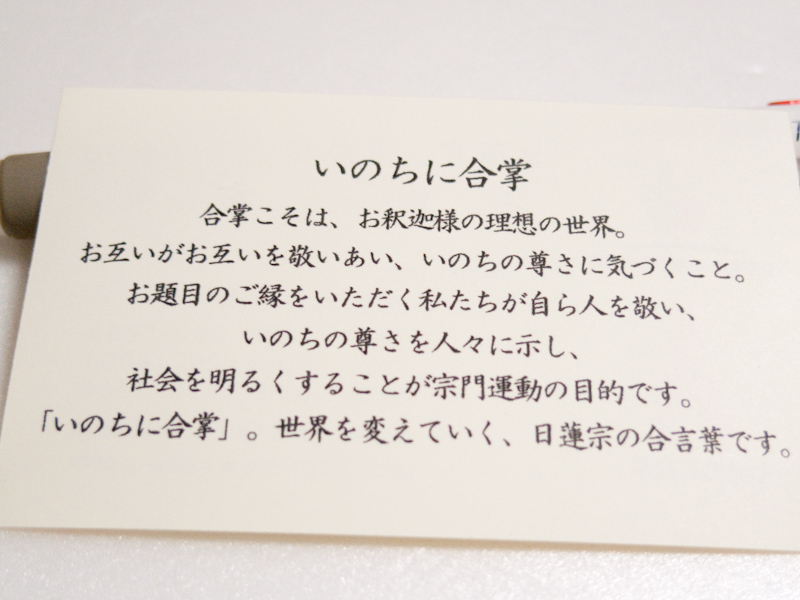 いのちに合掌
合掌こそは、お釈迦様の理想の世界。
お互いがお互いを敬いあい、いのちの尊さに気づくこと。
お題目のご縁をいただく私たちが自ら人を敬い、
いのちの尊さを人々に示し、
社会を明るくすることが宗門運動の目的です。
「いのちに合掌」。世界を変えていく、日蓮宗の合言葉です。